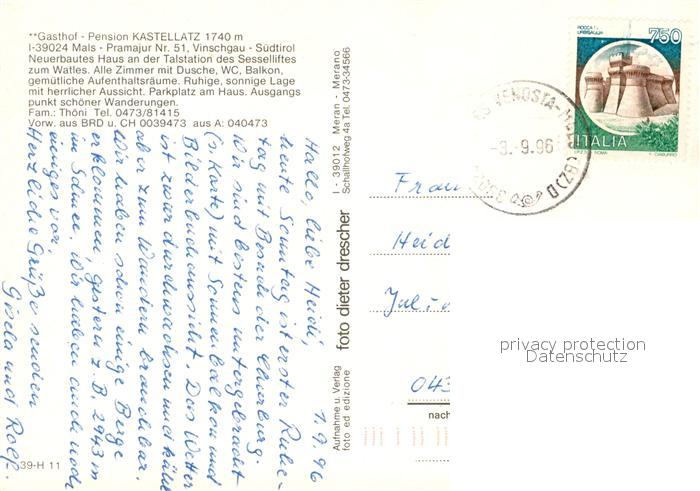 **Gasthof - Pension KASTELLATZ 1740 m
I-39024 Mals - Pramajur Nr. 51, Vinschgau - Südtirol
Neuerbautes Haus an der Talstation des Sesselliftes
zum Watles. Alle Zimmer mit Dusche, WC, Balkon,
gemütliche Aufenthaltsräume. Ruhige, sonnige Lage
mit herrlicher Aussicht. Parkplatz am Haus. Ausgangs
punkt schöner Wanderungen.
Fam.: Thöni Tel. 0473/81415
Vorw. aus BRD u. CH 0039473 aus A: 040473
1.9.96
Hallo, liebe Heidi,
heute Sonntag ist erster Ruhe-
tag mit Besuch der Churburg.
Wir sind bestens untergebracht
(s. Karte) mit Sonnenbalkon und
Bilderbuchaussicht. Das Wetter
ist zwar durchwachsen und kühl
aber zum Wandern brauchbar.
Wir haben schon einige Berge
erklommen, gestern z. B. 2943 m
im Schnee. Wir haben auch noch
einiges vor.
Herzliche Grüße senden
Gisela und Rolf.
39-H 11
Aufnahme u. Verlag
foto ed edizione
foto dieter drescher
I - 39012 Meran - Merano
Schallhofweg 4a Tel. 0473-34566
ROCCA DI
URBISAGLIA
750
ITALIA
I.P.Z.S. ROMA
VENOSTA-MALS (BZ) D
-3.-9.96
Frau
Heid
Jul.-
043
nach
privacy protection
Datenschutz